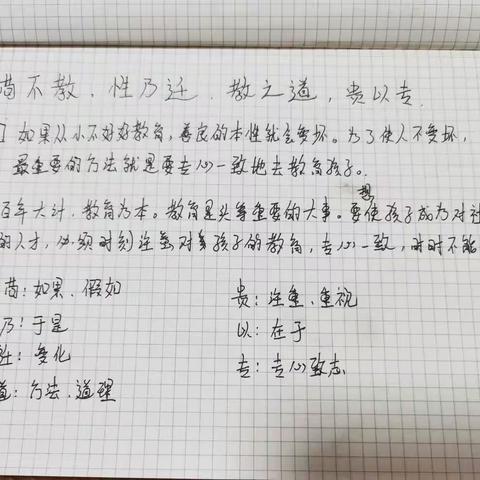 苟不教，性乃迁．教之道，贵以专．
如果从小不好好教育，善良的本性就会变坏。为了使人不变坏，
最重要的方法就是要专心一致地去教育孩子。
百年大计，教育为本。教育是头等重要的大事。要想使孩子成为对社
的人才，必须时刻注重对孩子的教育，专心一致，时时不能
苟：如果、假如 贵：注重、重视
乃：于是 以：在于
迁：变化 专：专心致志
道：方法、道理